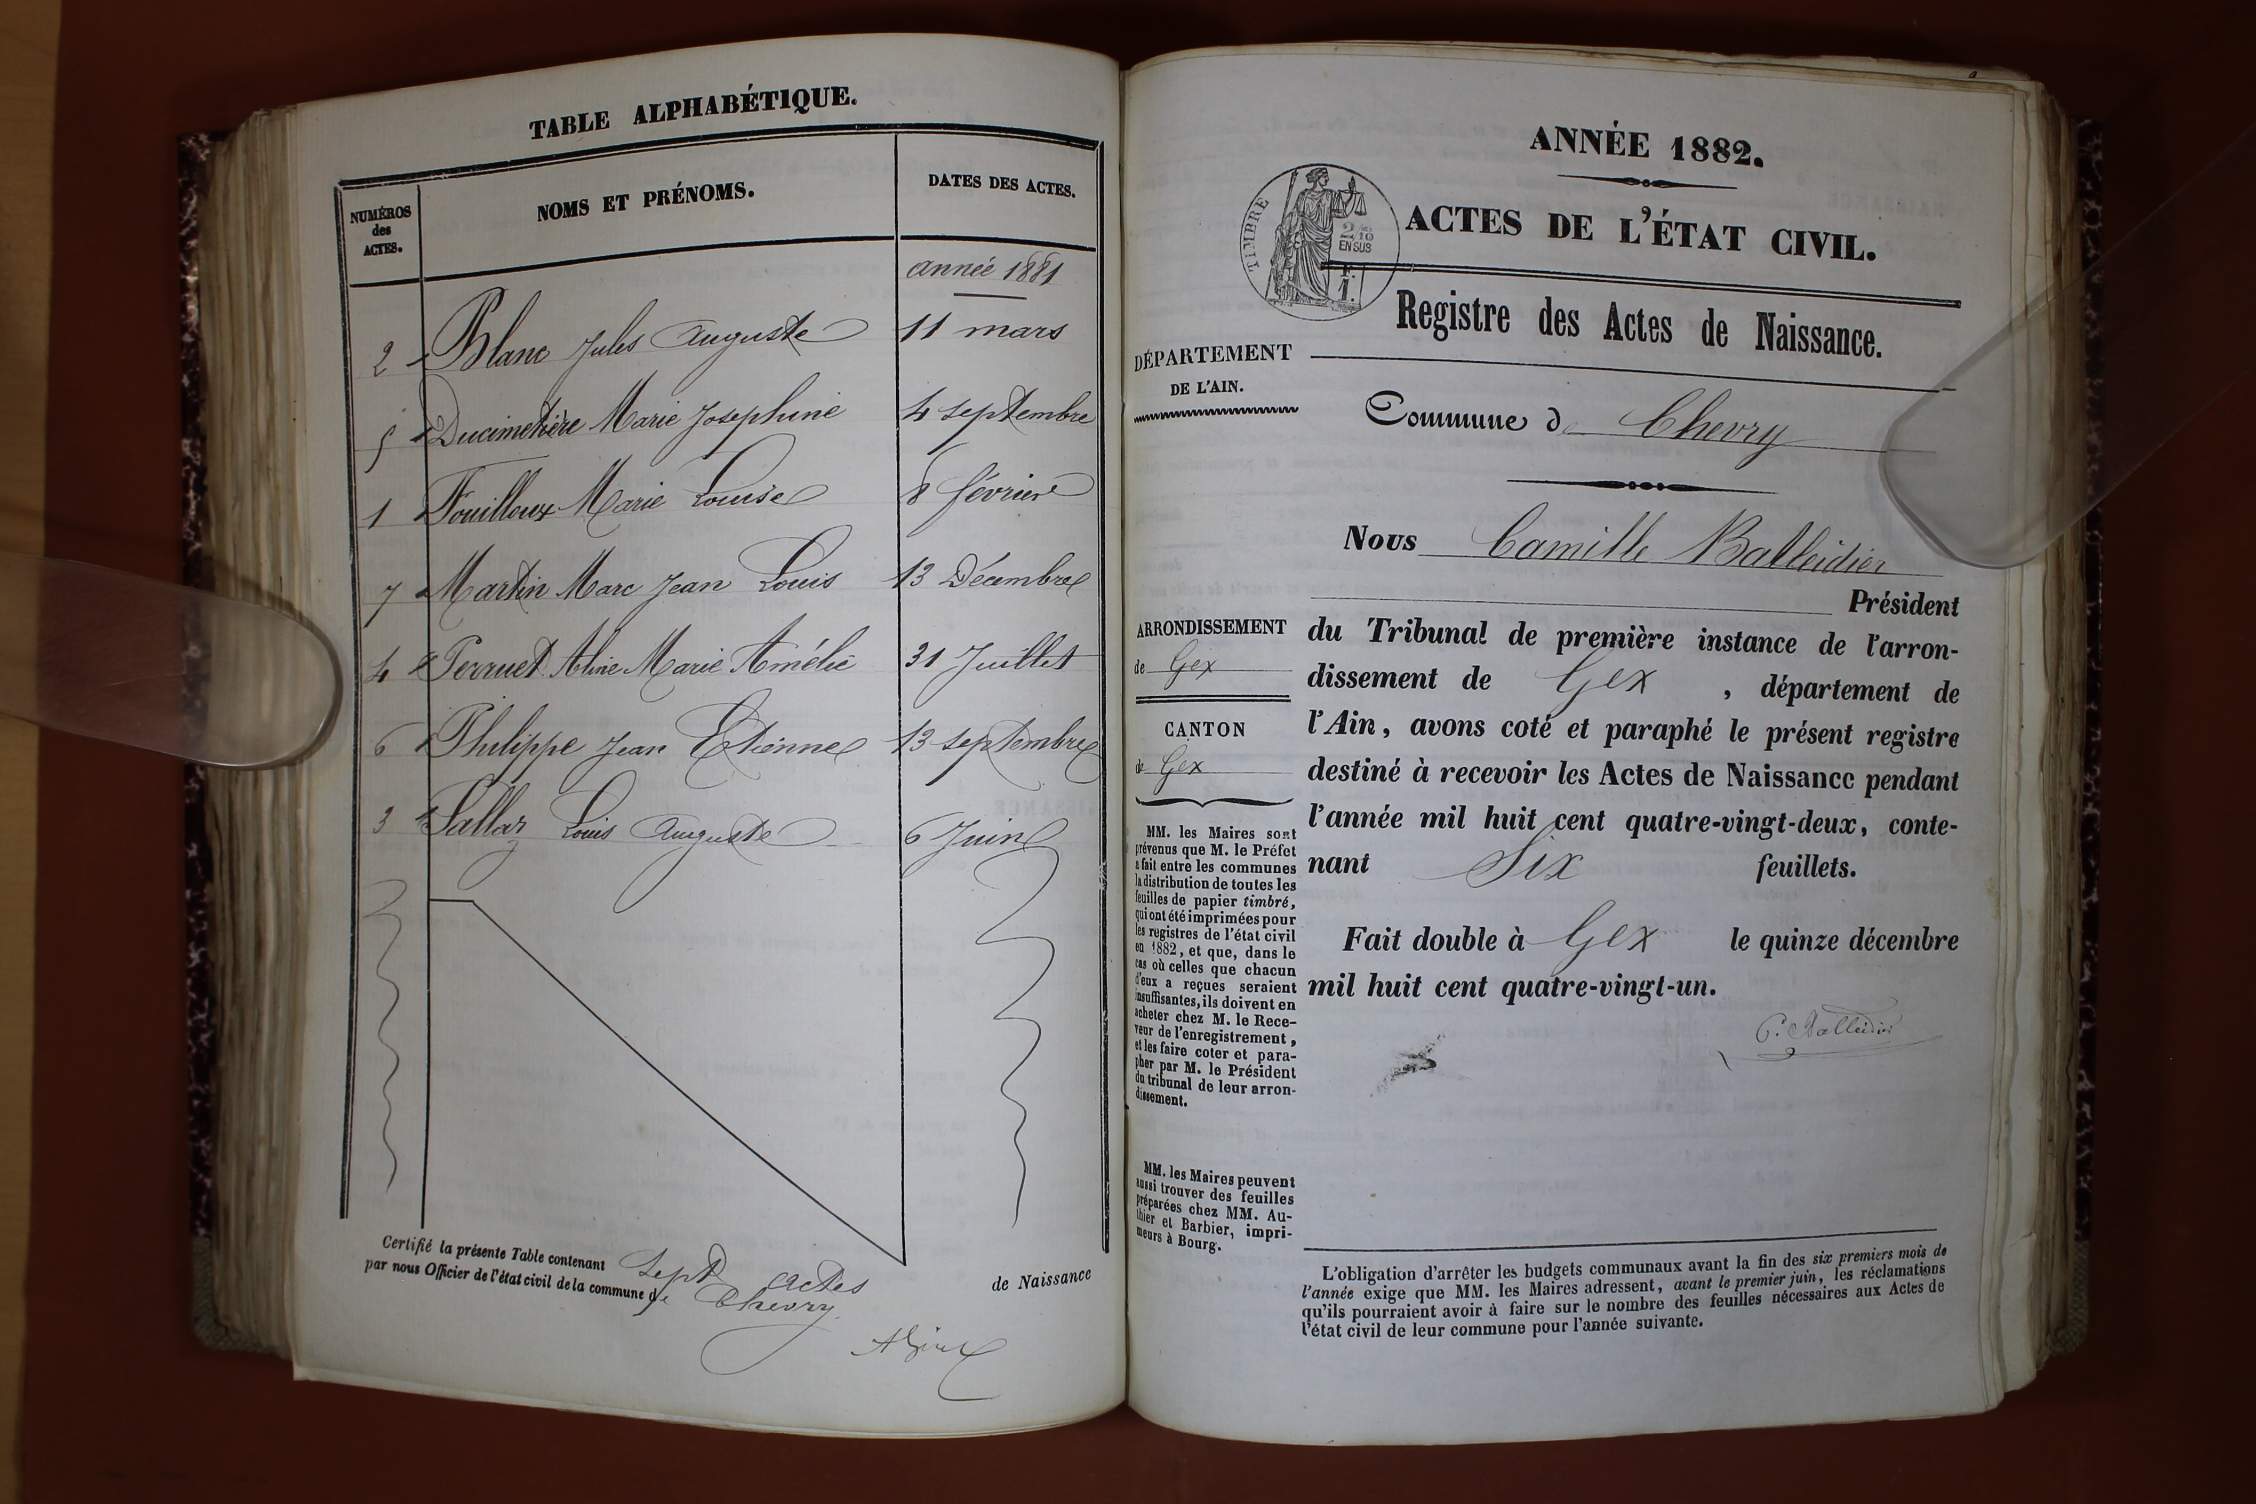 TABLE ALPHABÉTIQUE.
NUMÉROS
des
ACTES.
NOMS ET PRÉNOMS.
DATES DES ACTES.
année 1881
2 Blanc Jules Auguste 11 mars
5 Ducimetière Marie Josephine 4 septembre
1 Fouilloux Marie Louise 8 février
7 Martin Marc Jean Louis 13 Décembre
4 Perruet Aline Marie Amélie 31 Juillet
6 Philippe Jean Etienne 13 septembre
3 Sallaz Louis Auguste 6 Juin
Certifié la présente Table contenant sept actes de Naissance
par nous Officier de l'état civil de la commune de Chevry
ANNÉE 1882.
ACTES DE L'ÉTAT CIVIL.
TIMBRE
2/10
EN SUS
Registre des Actes de Naissance.
DÉPARTEMENT
DE L'AIN.
Commune de Chevry
Nous Camille Balleidier
Président
du Tribunal de première instance de l'arron-
dissement de Gex, département de
l'Ain, avons coté et paraphé le présent registre
destiné à recevoir les Actes de Naissance pendant
l'année mil huit cent quatre-vingt-deux, conte-
nant Six feuillets.
Fait double à Gex le quinze décembre
mil huit cent quatre-vingt-un.
C. Balleidier
ARRONDISSEMENT
de Gex
CANTON
de Gex
MM. les Maires sont
prévenus que M. le Préfet
a fait entre les communes
la distribution de toutes les
feuilles de papier timbré,
qui ont été imprimées pour
les registres de l'état civil
en 1882, et que, dans le
cas où celles que chacun
d'eux a reçues seraient
insuffisantes, ils doivent en
acheter chez M. le Rece-
veur de l'enregistrement,
et les faire coter et para-
pher par M. le Président
du tribunal de leur arron-
dissement.
MM. les Maires peuvent
aussi trouver des feuilles
préparées chez MM. Au-
thier et Barbier, impri-
meurs à Bourg.
L'obligation d'arrêter les budgets communaux avant la fin des six premiers mois de
l'année exige que MM. les Maires adressent, avant le premier juin, les réclamations
qu'ils pourraient avoir à faire sur le nombre des feuilles nécessaires aux Actes de
l'état civil de leur commune pour l'année suivante.